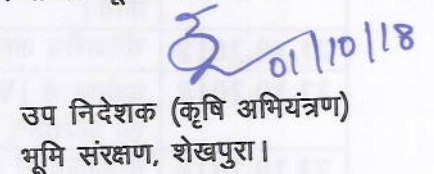 01/10/18
उप निदेशक (कृषि अभियंत्रण)
भूमि संरक्षण, शेखपुरा।